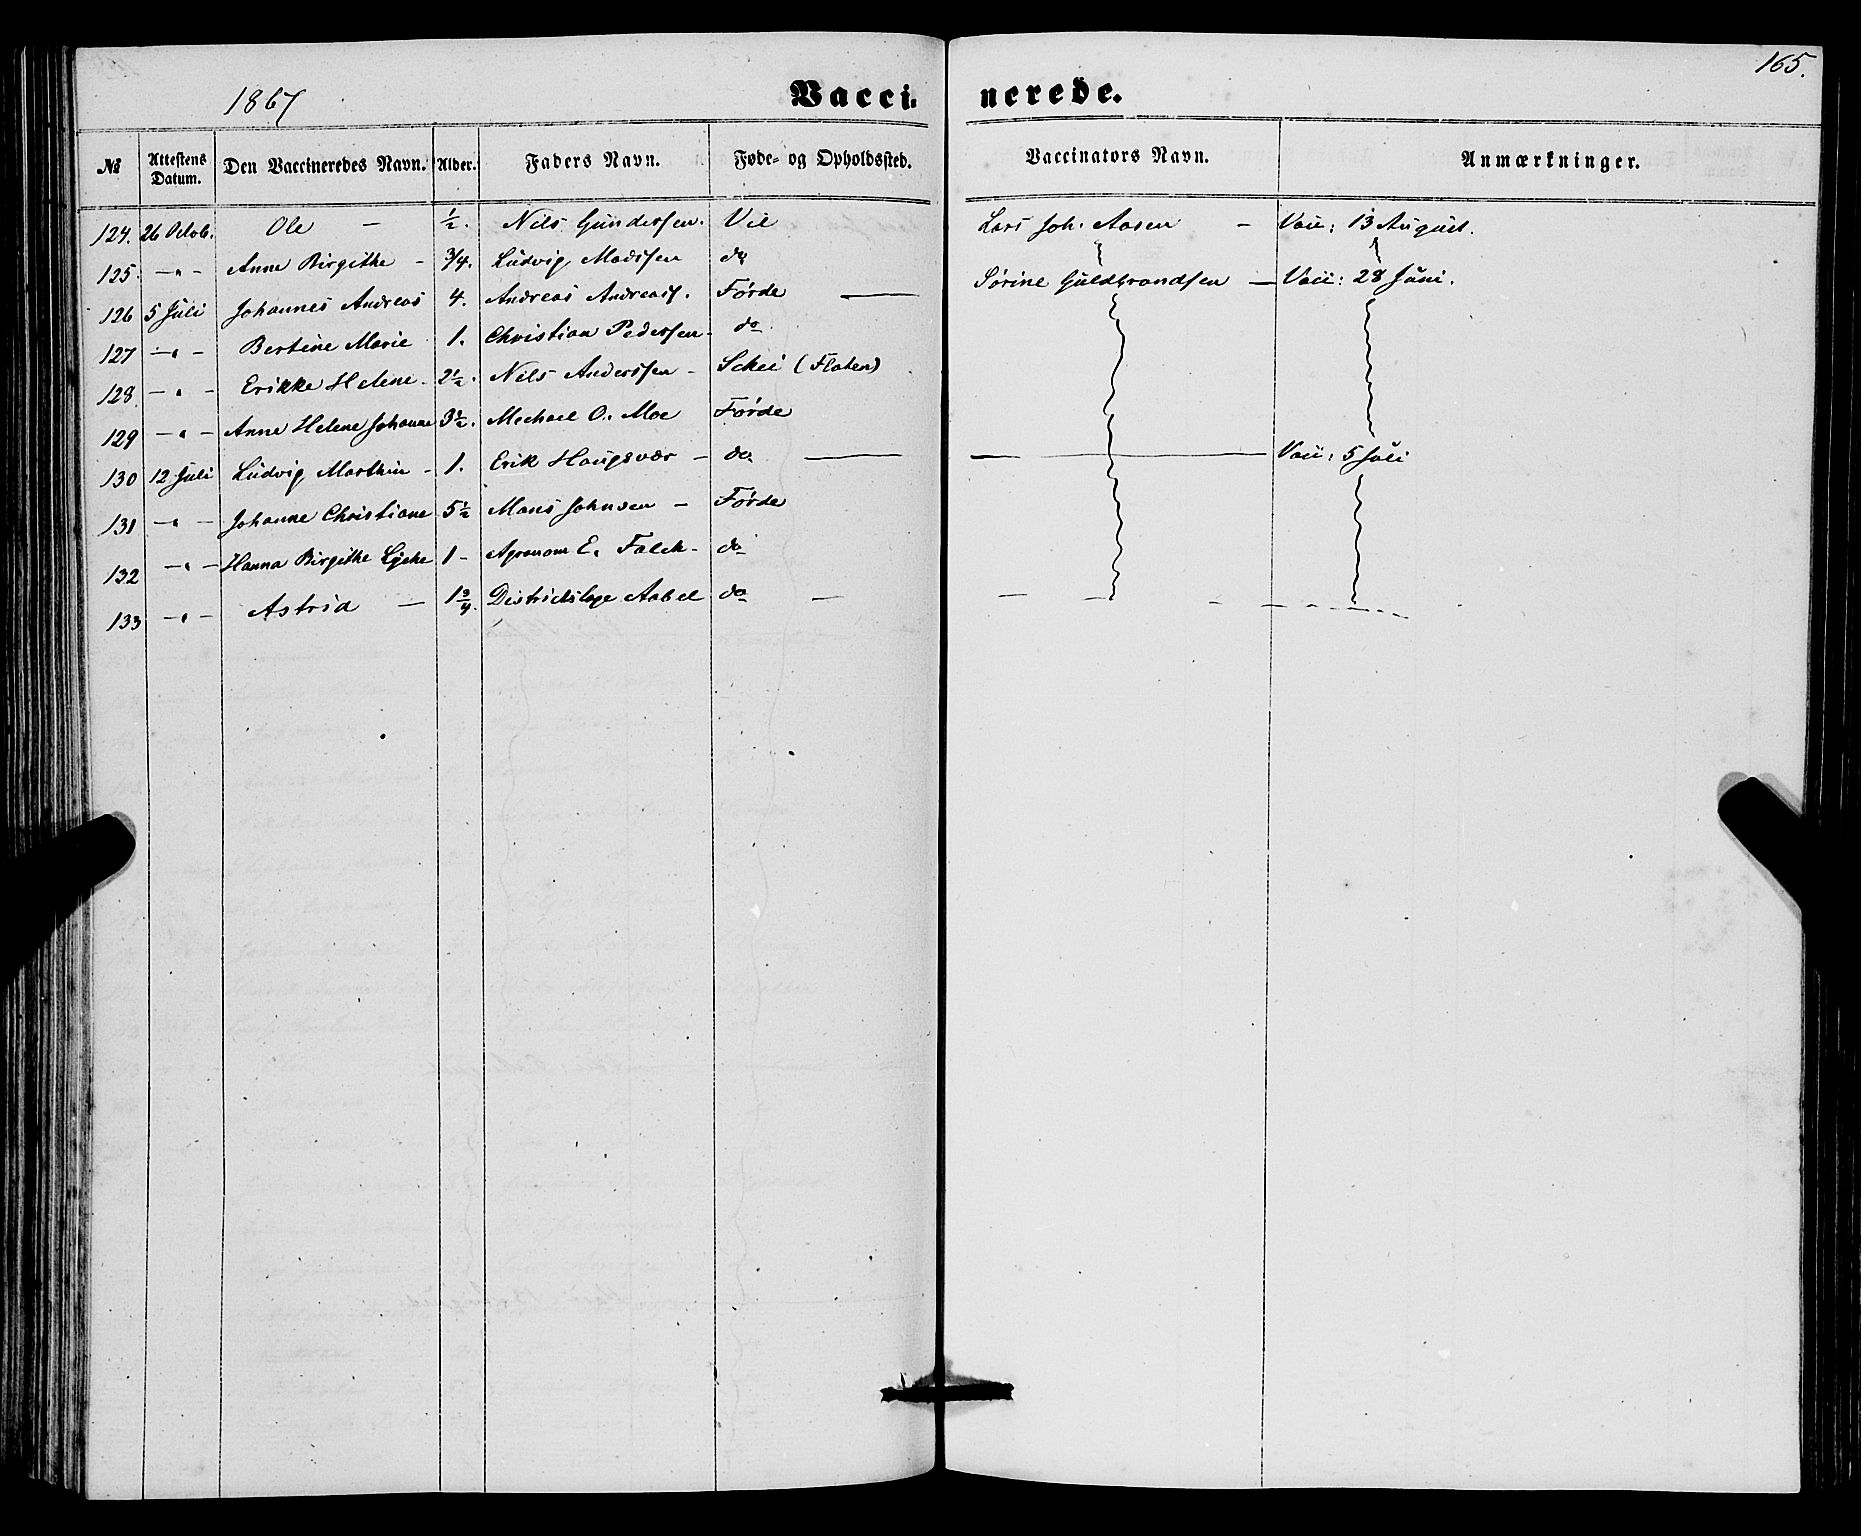 165.
1867 Vacci- nerede.
№ Attestens Datum. Den Vaccineredes Navn. Alder. Faders Navn. Føde- og Opholdssted. Vaccinators Navn. Anmærkninger.
124. 26 Octob. Ole — ½. Nils Gundersen. Vie Lars Joh. Aasen — Vacc: 13 August.
125. — " — Anne Birgithe — 3/4. Ludvig Madssen do
126 5 Juli Johannes Andreas 4. Andreas Andreass. Førde — Sørine Guldbrandsen — Vacc: 28 Juni.
127 — " — Bertine Marie 1. Christian Pedersen. do
128 — " — Erikke Helene. 2½. Nils Anderssen — Schei (Flaten)
129 — " — Anne Helene Johanne 3½. Mechael O. Moe Førde
130 12 Juli Ludvig Marthin — 1. Erik Haugsvær — do — — Vacc: 5 Juli
131 — " — Johanne Christiane 5½ Mons Johnsen — Førde
132 — " — Hanna Birgithe Lyche 1 — Agronom E. Falch — do
133 — " — Astrid — 1¾. Districtslæge Aabel do — — — —